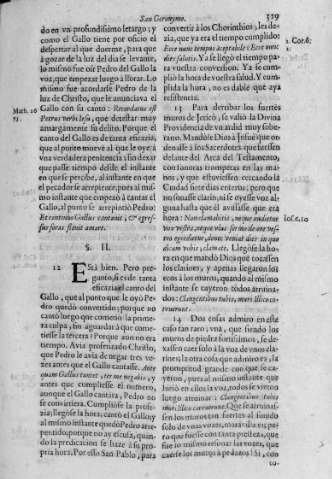 San Geronymo. 329
do en vn profundissimo letargo; y
como el Gallo tiene por oficio el
despertar al que duerme, para que
à gozar de la luz del dia se levante,
lo mismo fue oir Pedro del Gallo la
voz, que empezar luego à llorar. Lo
mismo fue acordarse Pedro de la
luz de Christo, que le anunciava el
Gallo con su canto: Recordatus est
Petrus verbi Iesu, que detestar muy
amargamente su delito. Porque el
canto del Gallo es de tanta eficacia,
que al punto mueve al que le oye: à
vna verdadera penitencia, sin dexar
que passe tiempo desde el instante
en que se percibe, al instante en que
el pecador se arrepiente; pues al mismo
instante que empezò à cantar el
Gallo, al punto se arrepintiò Pedro:
Et continuo Gallus cantavit, & egressus
foras flevit amare.
Math. 26
§. II.
12 Està bien. Pero pregunto,
si es de tanta
eficacia el canto del
Gallo, que al punto que le oyò Pedro
quedò convertido; porque no
cantò luego que comete la primera
culpa, sin aguardar à que cometiesse
la tercera? Porque aun no era
tiempo. Avia profetizado Christo,
que Pedro le avia de negar tres vezes
antes que el Gallo cantasse. Ante
quam Gallus cantet, ter me negabis: y
antes que cumpliesse el numero,
aunque el Gallo cantara, Pedro no
se convirtiera. Cumpliòse la profecia;
llegòse la hora; cantò el Gallo; y
al mismo instante quedò Pedro arrepentido;
porque no ay duda, quando
la predicacion se haze à su propria
hora. Por esso San Pablo, para
convertir à los Chorinthios, les dezia,
que ya era el tiempo cumplido:
Ecce nunc tempus acceptabile: Ecce nunc
dies salutis. Ya se llegò el tiempo para
vuestra conversion. Ya se cumpliò
la hora de vuestra salud. Y cumplida
la hora, no es dable que aya
resistencia.
2. Cor. 6.
13 Para derribar los fuertes
muros de Jericò, se valiò la Divina
Providencia de vn ardid muy soberano.
Mandòle Dios à Josuè que ordenasse
à los Sacerdotes que fuessen
delante del Arca del Testamento,
con sonoras trompetas en las manos;
y que estuviessen cercando la
Ciudad siete dias enteros; pero que
no sonasse clarin, ni se oyesse voz alguna
hasta que el avisasse que era
hora: Non clamabitis, nec audietur
vox vestra, neque vllus sermo de ore vestro
egredietur, donec veniat dies in quo
dicam vobis, clamate. Llegòse la hora
en que mandò Dios que tocassen
los clarines, y apenas llegaron los
ecos à los muros, quando al mismo
instante se cayeron todos arruinados:
Clangentibus tubis, muri illico corruerunt.
Ios. 6. 10
14 Dos cosas admiro en este
caso raro: vna, que siendo los
muros de piedra fortissimos, se dexassen
caer solo à la voz de vnos clarines;
la otra cosa que admiro es, la
promptitud grande con que se cayeron,
pues al mismo instante que
hiriò en ellos la voz, todos se vieron
luego arruinar: Clangentibus tubis
muri illico corruerunt. Que se arruinassen
los